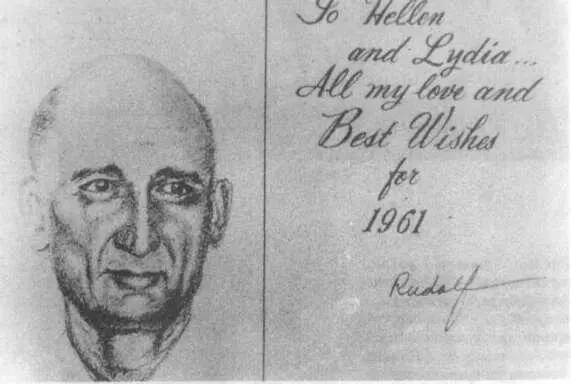 To Hellen
and Lydia...
All my love and
Best Wishes
for
1961
Rudolf